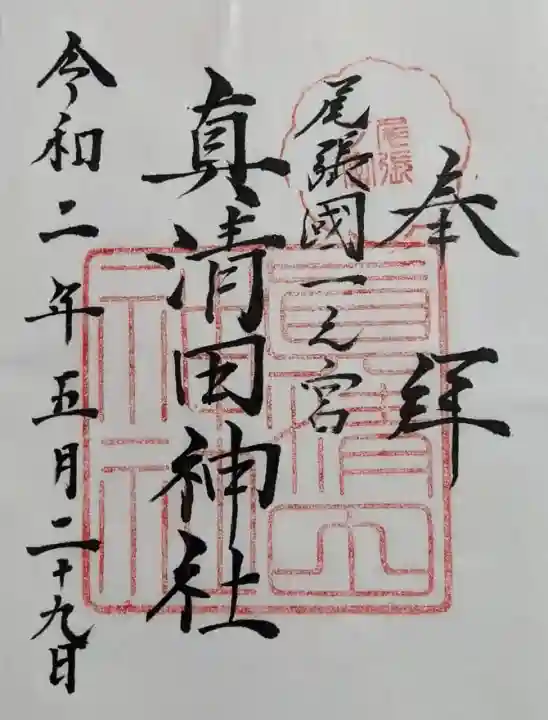 奉拝
尾張國一之宮
真清田神社
令和二年五月二十九日
真清田神社